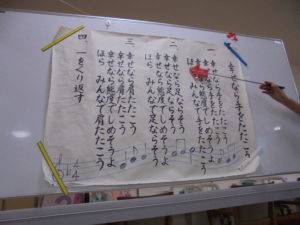 幸せなら手をたたこう
一 幸せなら手をたたこう
幸せなら手をたたこう
幸せなら態度でしめそうよ
ほら みんなで手をたたこう
二 幸せなら足ならそう
幸せなら足ならそう
幸せなら態度でしめそうよ
ほら みんなで足ならそう
三 幸せなら肩たたこう
幸せなら肩たたこう
幸せなら態度でしめそうよ
ほら みんなで肩たたこう
四 一をくり返す